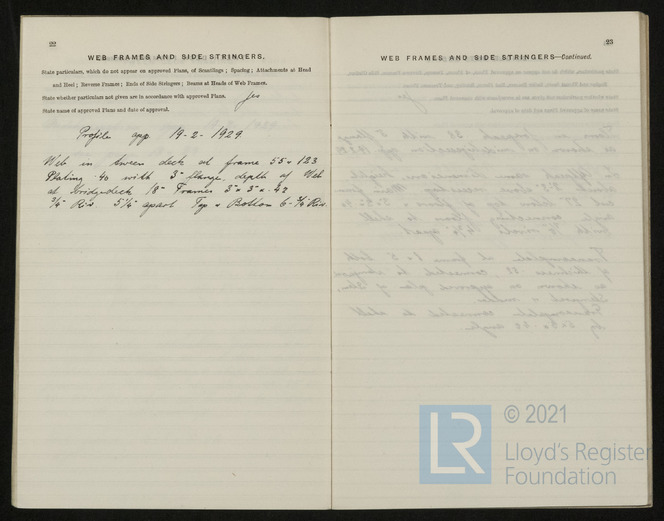 22
WEB FRAMES AND SIDE STRINGERS.
State particulars, which do not appear on approved Plans, of Scantlings; Spacing; Attachments at Head
and Heel; Reverse Frames; Ends of Side Stringers; Beams at Heads of Web Frames.
State whether particulars not given are in accordance with approved Plans. Yes
State name of approved Plans and date of approval.
Profile app 19-2-1929
Web in tween deck at frame 55 & 123
Plating .40 with 3" flange, depth of Web
at bridge deck 18" Frames 3" x 3" x .42
3/4" Riv. 5 1/4" apart Top & Bottom 6-3/4 Riv.
23
WEB FRAMES AND SIDE STRINGERS—Continued.
LR
© 2021
Lloyd's Register
Foundation